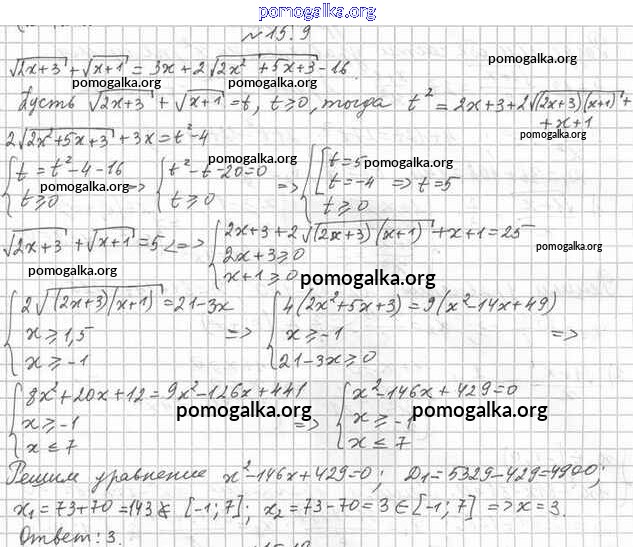 pomogalka.org
№ 15.9
√(2x+3) + √(x+1) = 3x + 2√(2x² + 5x + 3) - 16
pomogalka.org pomogalka.org
Пусть √(2x+3) + √(x+1) = t, t ≥ 0, тогда t² = 2x+3+2√((2x+3)(x+1)) +
+ x+1
2√(2x²+5x+3) + 3x = t² - 4
{ t = t² - 4 - 16 => { t² - t - 20 = 0 => { [ t = 5 pomogalka.org
pomogalka.org pomogalka.org t = -4 => t = 5
t ≥ 0 t ≥ 0 t ≥ 0
√(2x+3) + √(x+1) = 5 <=> { 2x+3+2√((2x+3)(x+1)) + x+1 = 25
2x+3 ≥ 0 pomogalka.org
pomogalka.org x+1 ≥ 0 pomogalka.org
{ 2√((2x+3)(x+1)) = 21-3x { 4(2x²+5x+3) = 9(x²-14x+49)
x ≥ 1,5 => x ≥ -1 =>
x ≥ -1 21-3x ≥ 0
{ 8x²+20x+12 = 9x²-126x+441 { x²-146x+429=0
x ≥ -1 pomogalka.org => x ≥ -1 pomogalka.org
x ≤ 7 x ≤ 7
Решим уравнение x²-146x+429=0; D₁=5329-429=4900;
x₁=73+70=143 ∉ [-1; 7]; x₂=73-70=3 ∈ [-1; 7] => x=3.
Ответ: 3.